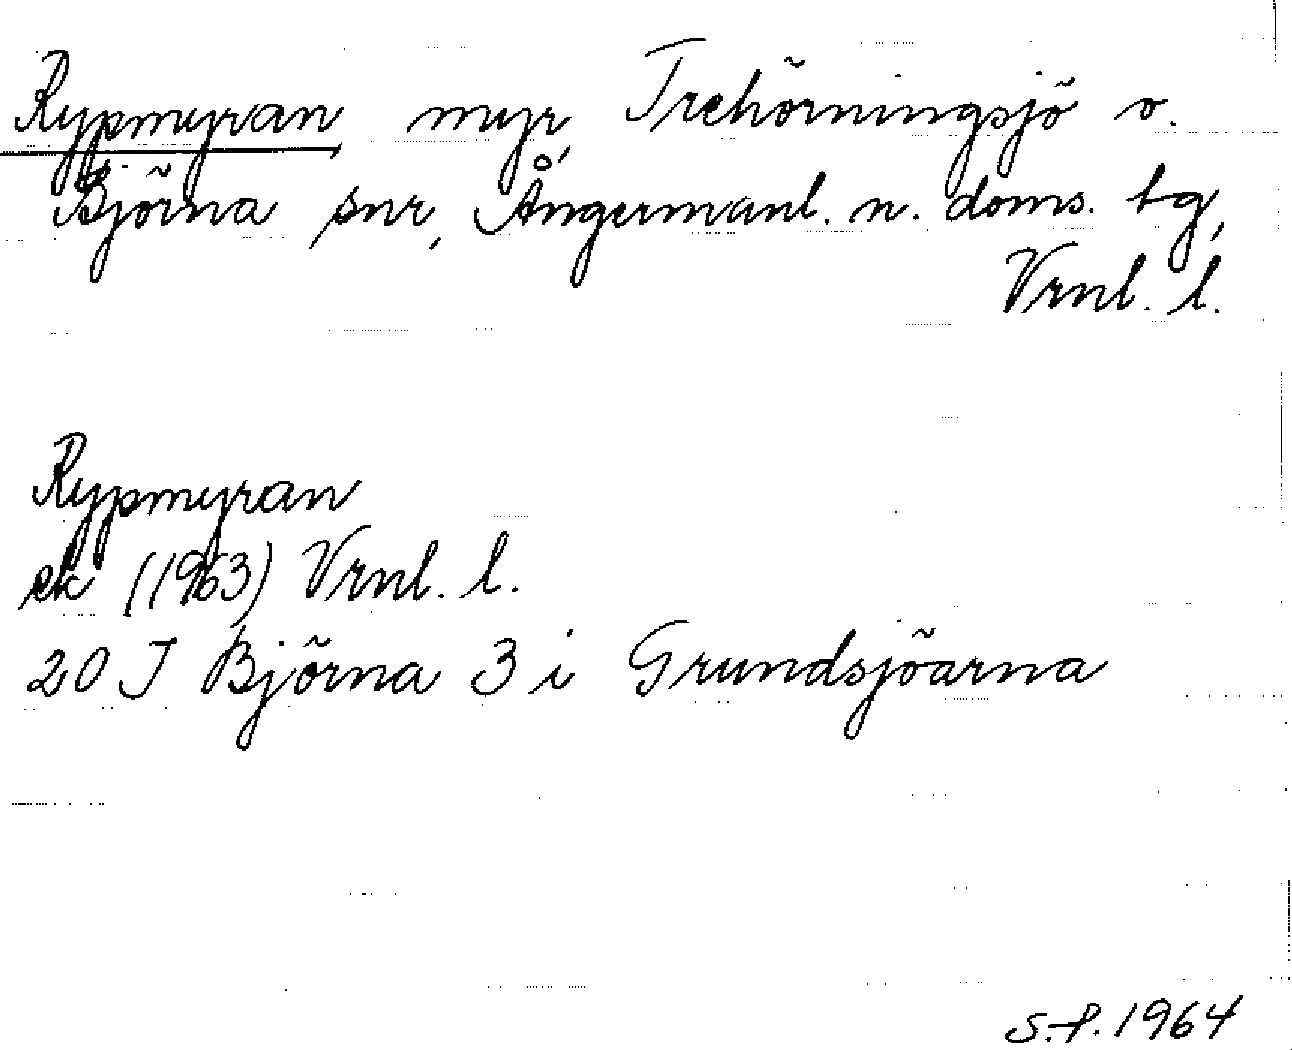 Rypmyran myr, Trehörningsjö o.
Björna snr, Ångermanl. n. doms. tg,
Vrnl. l.
Rypmyran
ek (1963) Vrnl. l.
20 J Björna 3 i Grundsjöarna
1964